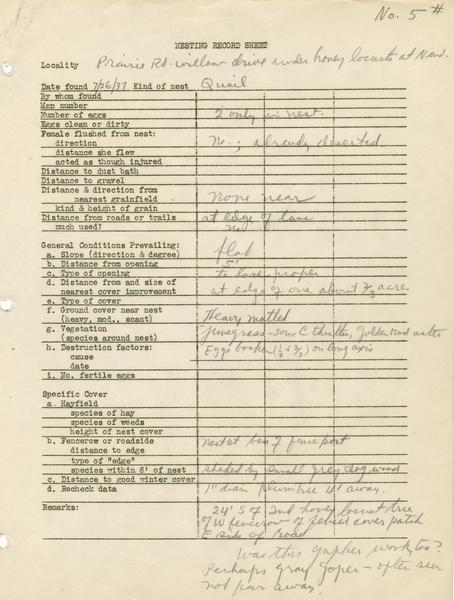 No. 5 #
NESTING RECORD SHEET
Locality Prairie Rd. willow drive under honey locusts at N. end.
Date found 7/26/37 Kind of nest Quail
By whom found
Map number
Number of eggs 2 only in nest.
Eggs clean or dirty
Female flushed from nest:
direction No.; already deserted.
distance she flew
acted as though injured
Distance to dust bath
Distance to gravel
Distance & direction from
nearest grainfield none near
kind & height of grain
Distance from roads or trails at edge of lane
much used? no
General Conditions Prevailing:
a. Slope (direction & degree) flat
b. Distance from opening 5'
c. Type of opening to lane proper
d. Distance from and size of
nearest cover improvement at edge of one about 2/3 acre
e. Type of cover
f. Ground cover near nest
(heavy, mod., scant) Heavy matted
g. Vegetation Junegrass - some C. thistles, goldenrod asters
(species around nest)
h. Destruction factors: Eggs broken (1/2 + 2/3) on long axis
cause
date
i. No. fertile eggs
Specific Cover
a. Hayfield
species of hay
species of weeds
height of nest cover
b. Fencerow or roadside nest at base of fence post
distance to edge
type of "edge"
species within 8' of nest shaded by small grey dogwood
c. Distance to good winter cover
d. Recheck data 1" diam plumtree 4' away.
Remarks: 24' S of 2nd honey locust tree
of W fencerow of fenced cover patch
E side of road
Was this gopher work, too?
Perhaps gray goper - often seen
not far away.